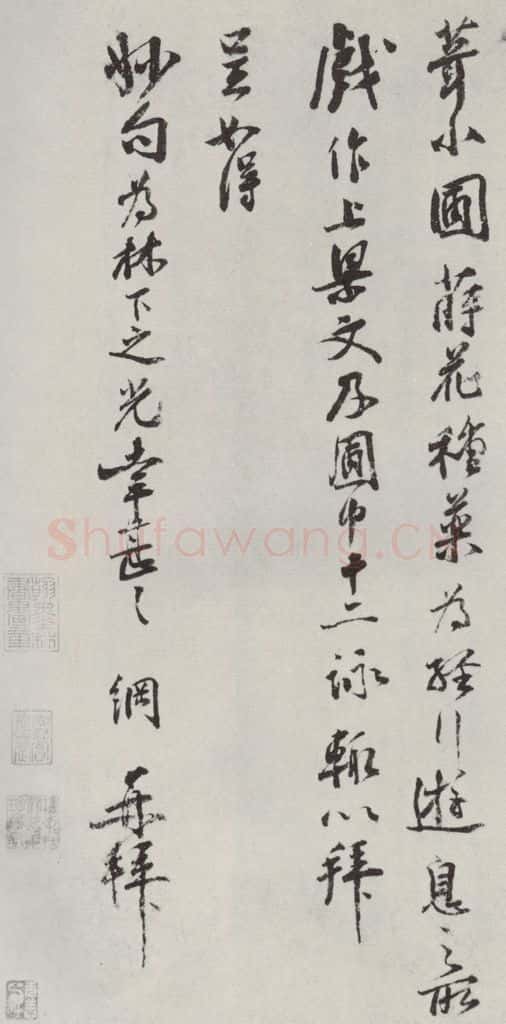 葺小圃蒔花種藥為經行遊息之所
戲作上梁文及圃中十二詠輒以拜
呈如得
妙句為林下之光幸甚〻 綱 再拜
Shufawang.CN